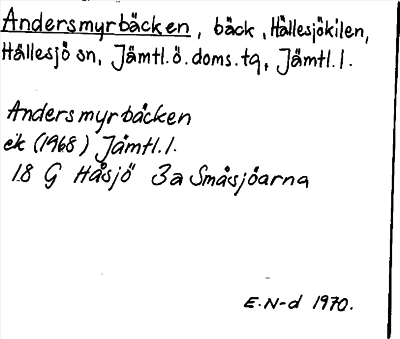 Andersmyrbäcken, bäck, Hällesjökilen,
Hällesjö sn, Jämtl.ö.doms.tg, Jämtl.l.
Andersmyrbäcken
ek (1968) Jämtl.l.
18 G Håsjö 3a Småsjöarna
E.N-d 1970.